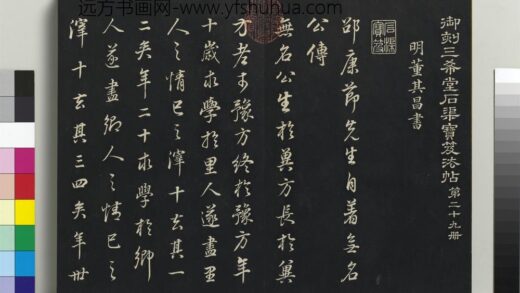 远方书画 www.yfshuhua.com
御刻三希堂石渠寶笈法帖 第二十九册
明董其昌書
邵康節先生自著無名
公傳
無名公生於冀方長於冀
方老於豫方終於豫方年
十歲求學於里人遂盡里
人之情己之滓十去其一
二矣年二十求學於鄉
人遂盡鄉人之情己之
滓十去其三四矣年卅